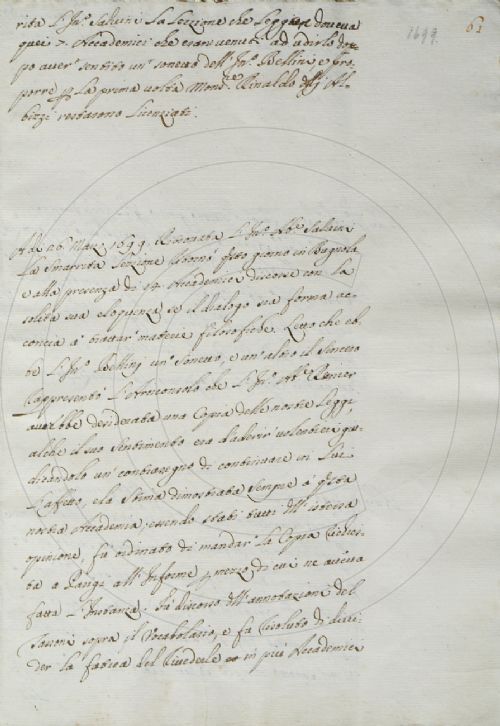 1699. 61
rita L'Inn.º Salvini La Lezzione che Leggere doveva
quei 7. Accademici che erano venuti ad udirlo do-
po aver sentito un sonetto dell'Inn.º Bellini e pro-
porre p La prima volta Mons.re Rinaldo degl' Al-
bizzi restarono Licenziati.
A dì 26. Marz. 1699. Ritrovata L'Inn.º Ab.e Salvini
La Smarrita Lezione tornò q.sto giorno in Bugnola
e alla presenza di 14. Accademici discorse con La
solita sua eloquenza se il dialogo sia forma ac-
concia a trattar materie filosofiche. Letto che eb-
be L'Inn.º Bellini un Sonetto, e un altro il Sorretto
Rappresentò L'Arciconsolo che L'Inn.º Ab.e Renier
avrebbe desiderata una Copia delle nostre Leggi,
alche il suo Sentimento era d'aderir volentieri giu-
dicandolo un contrasegno di continuare in Lui
L'affetto, e la Stima dimostrata Sempre a q.sta
nostra Accademia; essendo stati tutti dell' istessa
opinione, fu ordinato di mandar La Copia richies-
ta a Parigi all' Informe p mezzo di cui ne aveva
fatta L'Instanza. Fu discorso dell' annotazioni del
Tassoni sopra il Vocabolario, e fu risoluto di divi-
der la fatica del Rivederle in più Accademici